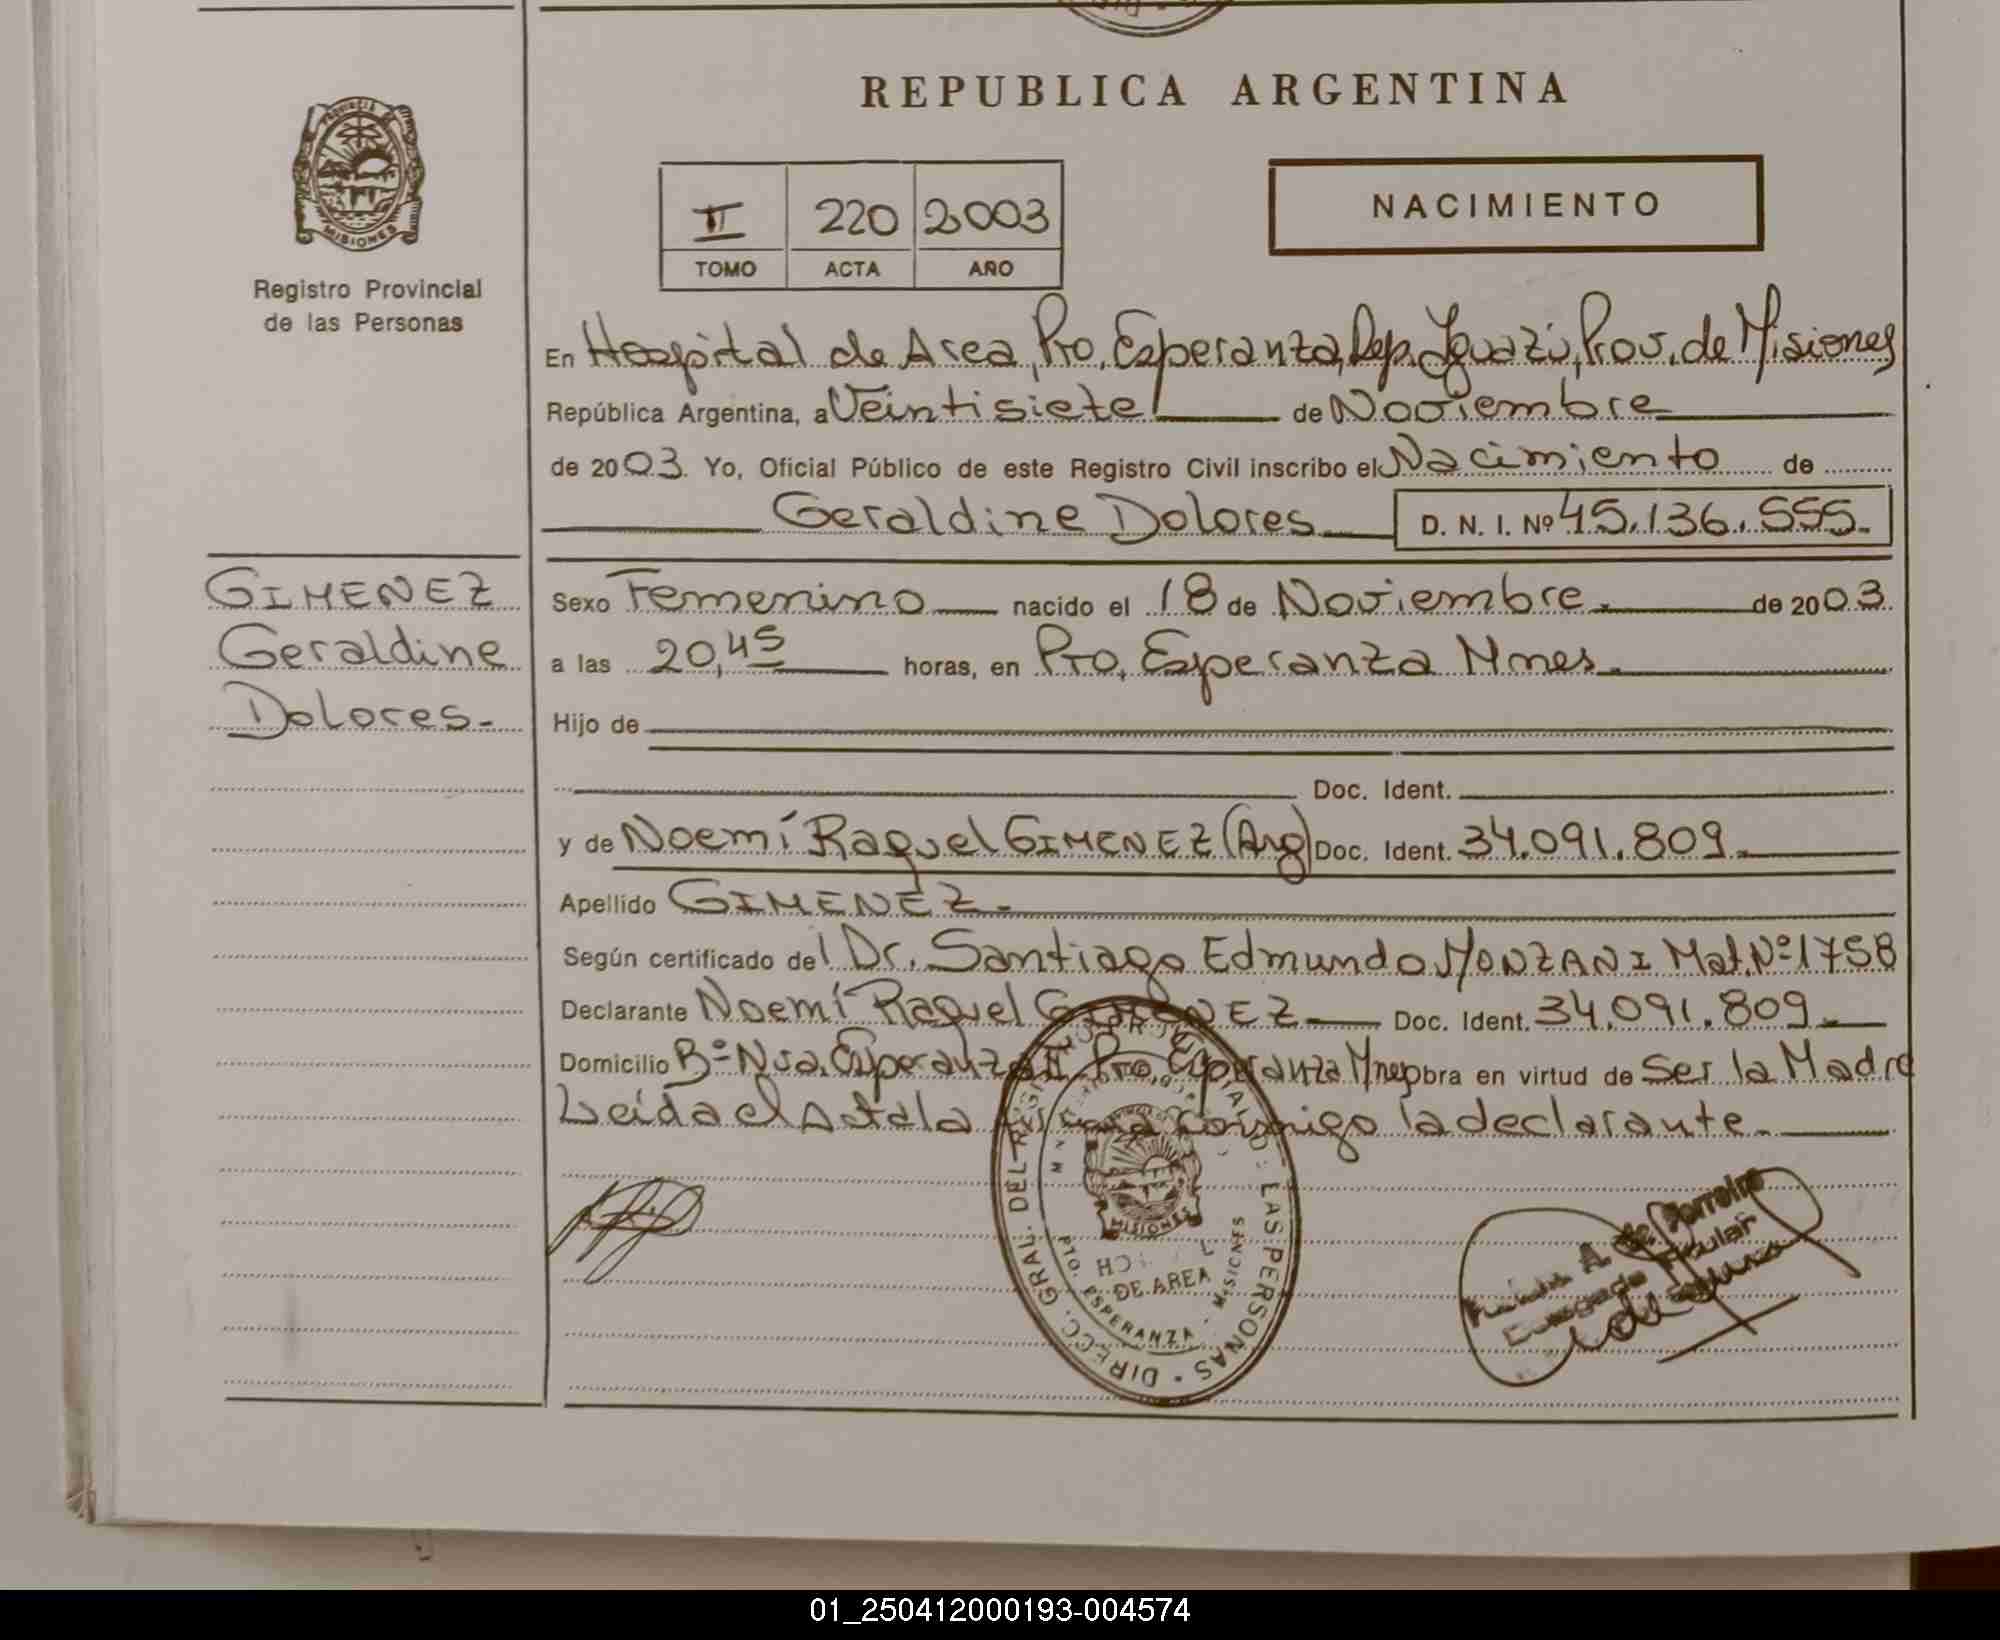 REPUBLICA ARGENTINA
PROVINCIA DE
MISIONES
Registro Provincial
de las Personas
II 220 2003
TOMO ACTA AÑO
NACIMIENTO
En Hospital de Area, Pto. Esperanza, Dep. Iguazú, Prov. de Misiones
República Argentina, a Veintisiete de Noviembre
de 2003. Yo, Oficial Público de este Registro Civil inscribo el Nacimiento de
Geraldine Dolores D. N. I. Nº 45.136.555.
GIMENEZ
Geraldine
Dolores.-
Sexo Femenino nacido el 18 de Noviembre. de 2003.
a las 20,45 horas, en Pto. Esperanza Mnes.
Hijo de
Doc. Ident.
y de Noemí Raquel GIMENEZ (Arg) Doc. Ident. 34.091.809.
Apellido GIMENEZ.
Según certificado del Dr. Santiago Edmundo MONZANI Mat. Nº 1758
Declarante Noemí Raquel GIMENEZ Doc. Ident. 34.091.809.
Domicilio Bº Nva. Esperanza II Pto. Esperanza Mnes obra en virtud de Ser la Madre
Leída el Acta la firma conmigo la declarante.
DIRECC. GRAL. DEL LAS PERSONAS
MISIONES
DE AREA
PTO. ESPERANZA - MISIONES
A. de Ferreira
Delegada Titular
01_250412000193-004574